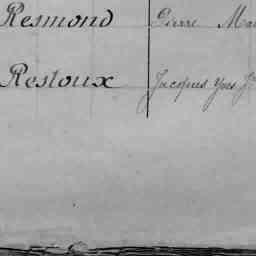 Resmond Pierre Ma
Restoux Jacques Yves J